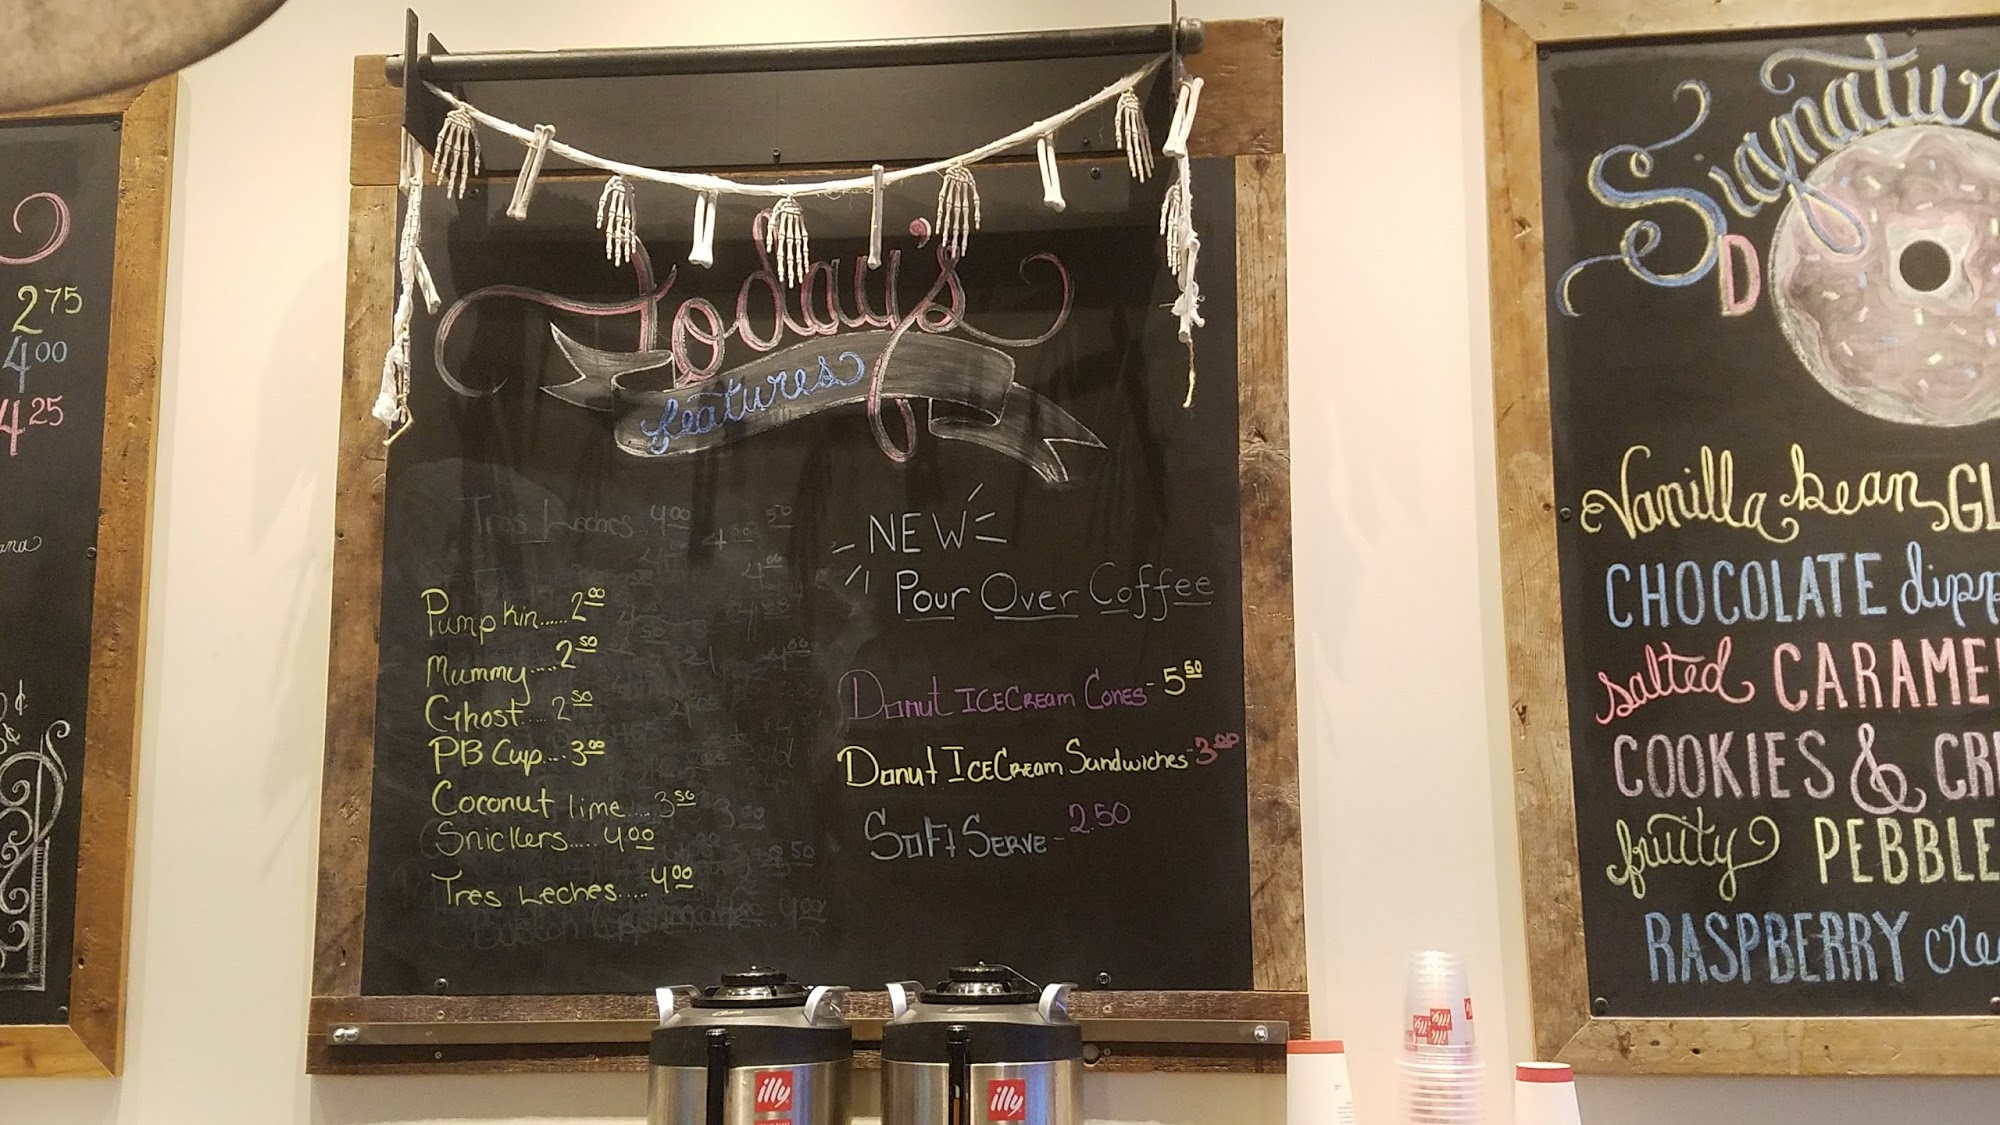 2 75
4 00
4 25
Today's
features
Tres Leches.. 4 00
Pumpkin...... 2 00
Mummy..... 2 50
Ghost..... 2 50
PB Cup.... 3 00
Coconut lime.... 3 50
Snickers..... 4 00
Tres Leches..... 4 00
NEW
Pour Over Coffee
Donut ICECREAM CONES - 5 50
Donut ICECREAM Sandwiches - 3 00
SOFT SERVE - 2.50
Signatur
D
Vanilla bean GL
CHOCOLATE dipp
salted CARAME
COOKIES & CR
fruity PEBBLE
RASPBERRY cre
illy
illy
illy